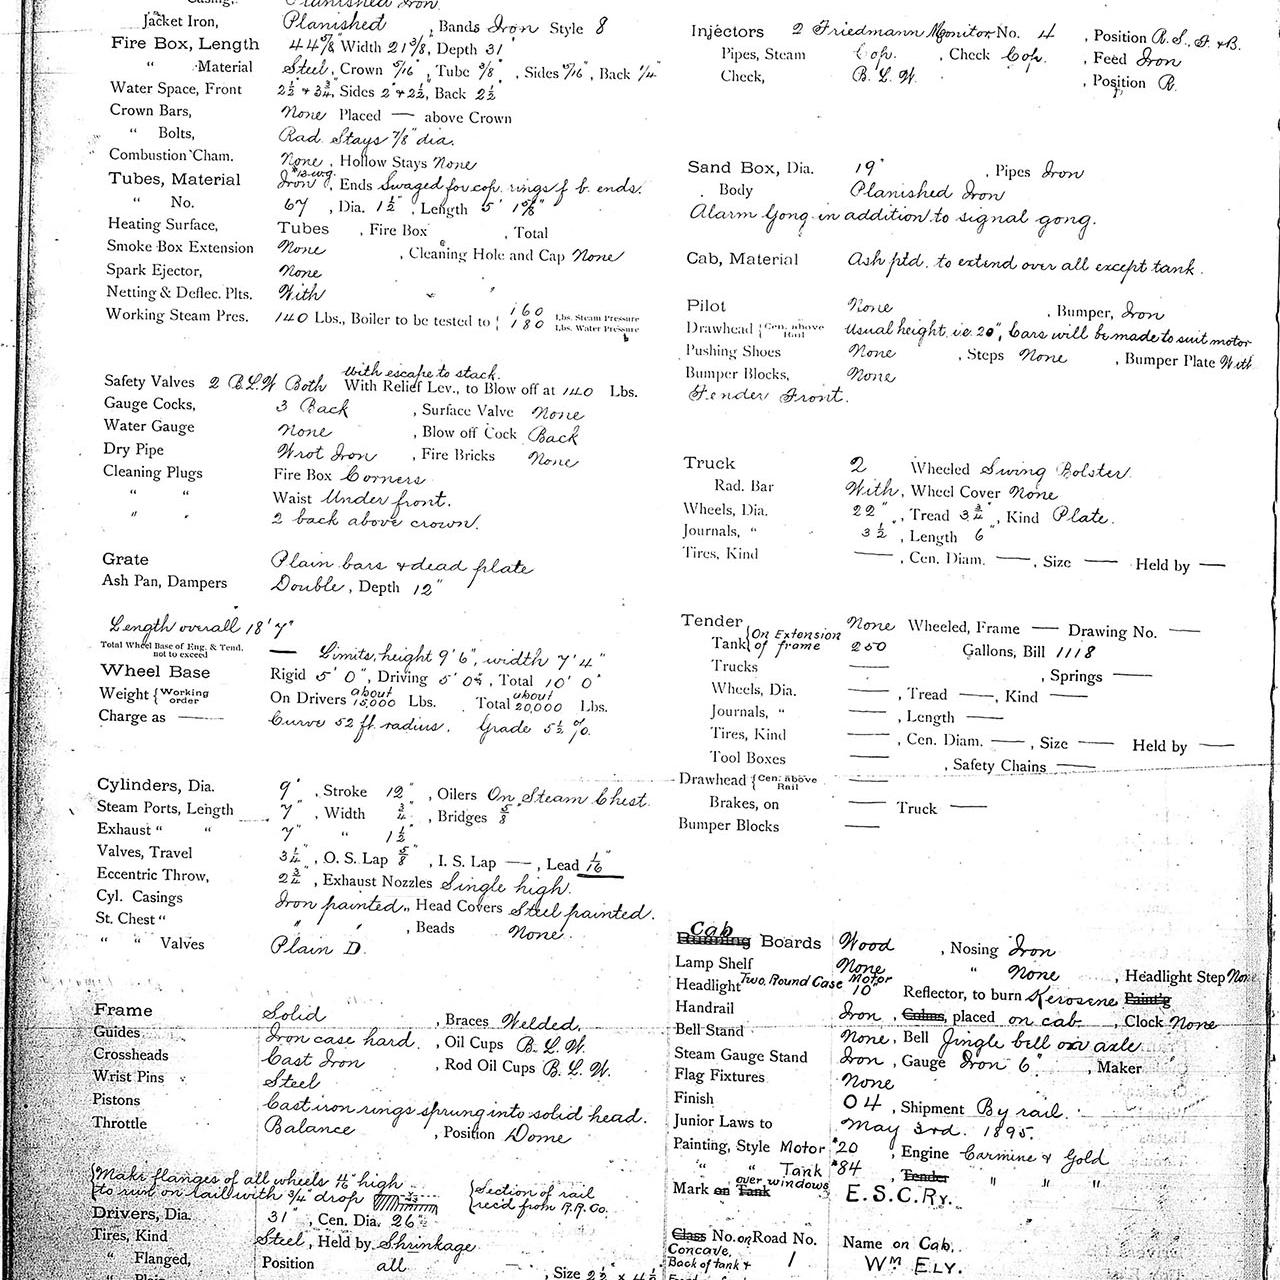 Casing, Planished Iron.
Jacket Iron, Planished , Bands Iron Style 8
Fire Box, Length 44 5/8" Width 21 3/8, Depth 31"
" Material Steel, Crown 5/16", Tube 3/8", Sides 5/16", Back 1/4"
Water Space, Front 2 1/2" + 3 3/4", Sides 2" + 2 1/2", Back 2 1/2"
Crown Bars, None Placed — above Crown
" Bolts, Rad. Stays 7/8" dia.
Combustion Cham. None , Hollow Stays None
Tubes, Material Iron #13 w.g. , Ends Swaged for cop. rings f b. ends.
" No. 67 , Dia. 1 1/2" , Length 5' 1 5/8"
Heating Surface, Tubes , Fire Box , Total
Smoke Box Extension None , Cleaning Hole and Cap None
Spark Ejector, None
Netting & Deflec. Plts. With
Working Steam Pres. 140 Lbs., Boiler to be tested to { 160 Lbs. Steam Pressure
180 Lbs. Water Pressure
with escape to stack.
Safety Valves 2 B.L.W Both With Relief Lev., to Blow off at 140 Lbs.
Gauge Cocks, 3 Back , Surface Valve None
Water Gauge None , Blow off Cock Back
Dry Pipe Wrot Iron , Fire Bricks None
Cleaning Plugs Fire Box Corners
" " Waist Under front.
" " 2 back above crown.
Grate Plain bars & dead plate
Ash Pan, Dampers Double , Depth 12"
Length overall 18' 7"
Total Wheel Base of Eng. & Tend. not to exceed — Limits, height 9' 6", width 7' 4"
Wheel Base Rigid 5' 0", Driving 5' 0", Total 10' 0"
Weight { Working order On Drivers about 15,000 Lbs. Total about 20,000 Lbs.
Charge as — Curve 52 ft. radius. Grade 5 1/2 %.
Cylinders, Dia. 9" , Stroke 12" , Oilers On Steam Chest.
Steam Ports, Length 7" , Width 3/4" , Bridges 5/8"
Exhaust " " 7" " 1 1/2"
Valves, Travel 3 1/4" , O. S. Lap 5/8" , I. S. Lap — , Lead 1/16"
Eccentric Throw, 2 3/4" , Exhaust Nozzles Single high.
Cyl. Casings Iron painted., Head Covers Steel painted.
St. Chest " " " , Beads None.
" " Valves Plain D.
Frame Solid , Braces Welded.
Guides, Iron case hard. , Oil Cups B. L. W.
Crossheads Cast Iron , Rod Oil Cups B. L. W.
Wrist Pins Steel
Pistons Cast iron rings sprung into solid head.
Throttle Balance , Position Dome
{Make flanges of all wheels high
to run on rail with 3/4" drop {Section of rail
rec'd from R.R. Co.
Drivers, Dia. 31" , Cen. Dia. 26"
Tires, Kind Steel, Held by Shrinkage
" Flanged, Position all , Size 2 1/2" x 4 1/2
Injectors 2 Friedmann Monitor No. 4 , Position R. S., F. & B.
Pipes, Steam Cop. , Check Cop. , Feed Iron
Check, B. L. W. , Position R.
Sand Box, Dia. 19" , Pipes Iron
Body Planished Iron
Alarm Gong in addition to signal gong.
Cab, Material Ash ptd. to extend over all except tank.
Pilot None , Bumper, Iron
Drawhead { Cen. above Rail Usual height. i.e. 20", Cars will be made to suit motor
Pushing Shoes None , Steps None , Bumper Plate With
Bumper Blocks, None
Fender Front.
Truck 2 Wheeled Swing Bolster.
Rad. Bar With, Wheel Cover None
Wheels, Dia. 22" , Tread 3 3/4" , Kind Plate.
Journals, " 3 1/2" , Length 6"
Tires, Kind — , Cen. Diam. — , Size — Held by —
Tender None Wheeled, Frame — Drawing No. —
Tank { On Extension of frame 250 Gallons, Bill 1118
Trucks — , Springs —
Wheels, Dia. — , Tread — , Kind —
Journals, " — , Length —
Tires, Kind — , Cen. Diam. — , Size — Held by —
Tool Boxes — , Safety Chains —
Drawhead { Cen. above Rail —
Brakes, on — Truck —
Bumper Blocks —
Cab
Running Boards Wood , Nosing Iron
Lamp Shelf None " None , Headlight Step None
Headlight Two Round Case Motor 10" Reflector, to burn Kerosene Paint'g
Handrail Iron , Colms, placed on cab. , Clock None
Bell Stand None, Bell Jingle bell on axle
Steam Gauge Stand Iron , Gauge Iron 6" , Maker
Flag Fixtures None
Finish 04 , Shipment By rail.
Junior Laws to May 3rd. 1895.
Painting, Style Motor #20 , Engine Carmine & Gold
" " Tank #84 Tender " " "
over windows
Mark on Tank E. S. C. Ry.
Class No. on Road No. Name on Cab.
Concave. 1 Wm ELY.
Back of tank +